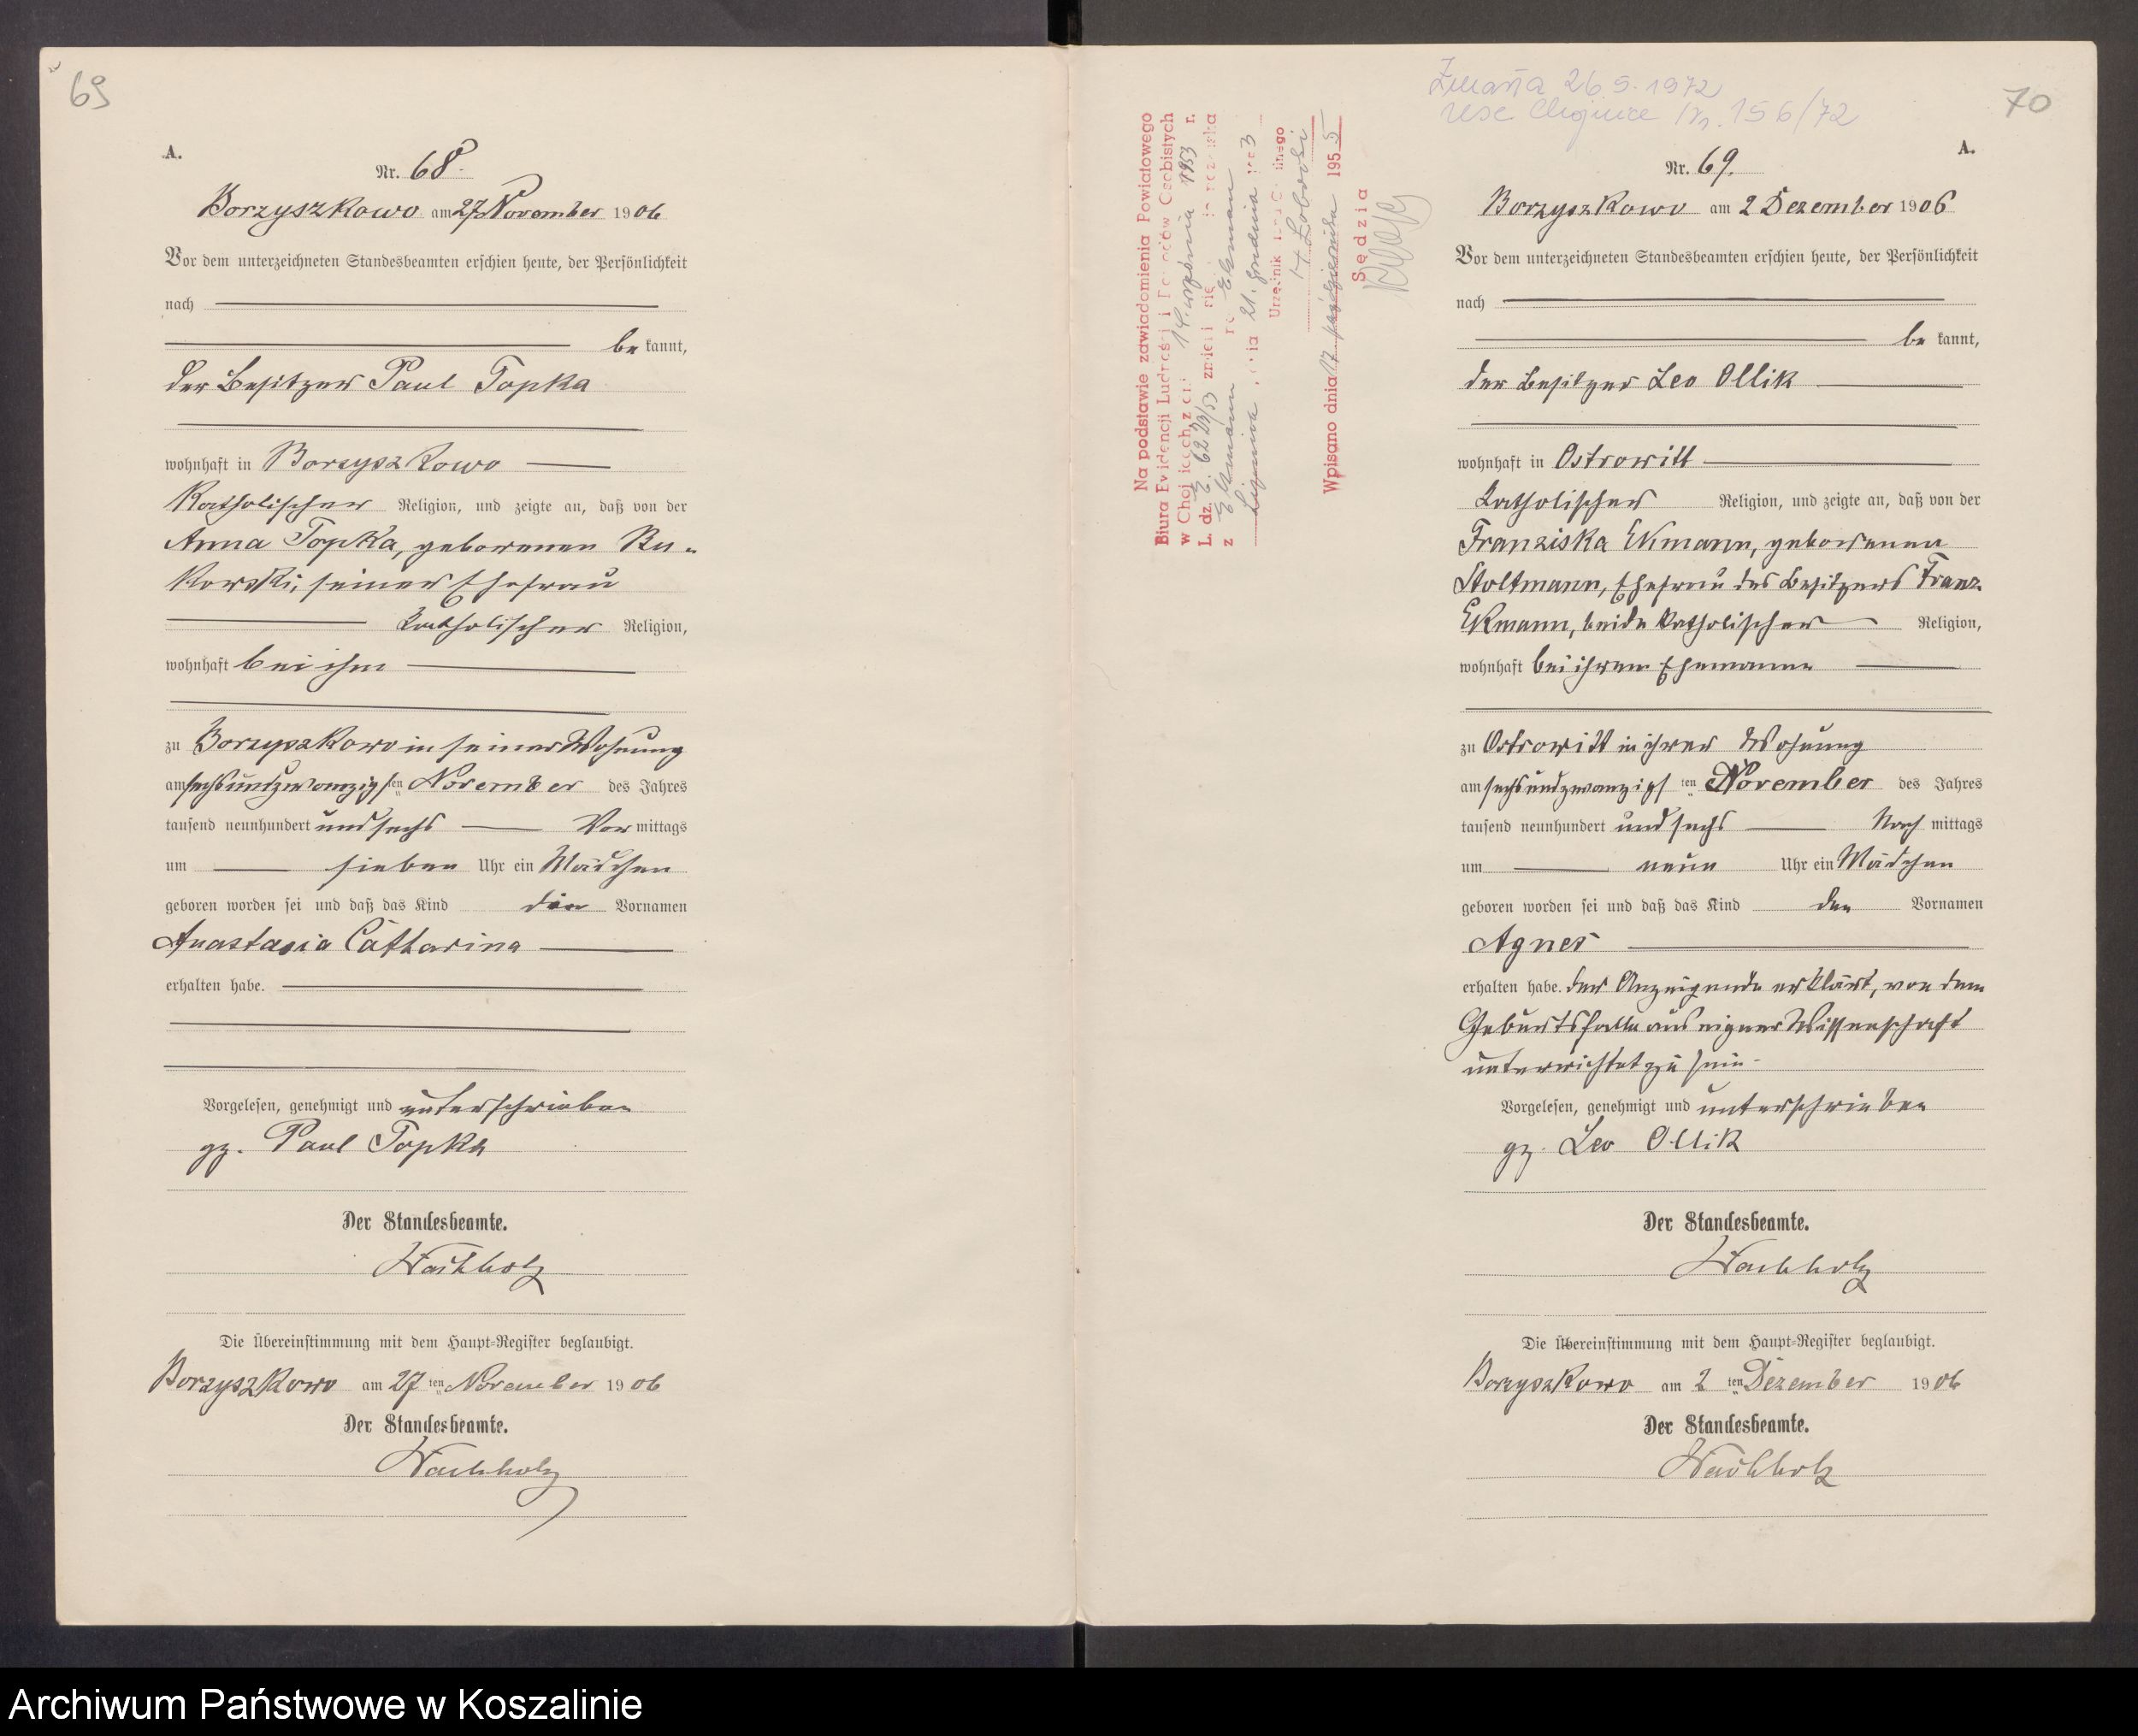 69
A.
Nr. 68.
Borzyszkowo am 27 November 1906
Vor dem unterzeichneten Standesbeamten erschien heute, der Persönlichkeit
nach
be kannt,
der Besitzer Paul Topka
wohnhaft in Borzyszkowo
Katholischer Religion, und zeigte an, daß von der
Anna Topka, geborenen Ku-
kowski, seiner Ehefrau
katholischer Religion,
wohnhaft bei ihm
zu Borzyszkowo in seiner Wohnung
am sechsundzwanzigsten November des Jahres
tausend neunhundert und sechs Vor mittags
um sieben Uhr ein Mädchen
geboren worden sei und daß das Kind die Vornamen
Anastasia Catharina
erhalten habe.
Vorgelesen, genehmigt und unterschrieben
gz. Paul Topka
Der Standesbeamte.
Wachholz
Die Übereinstimmung mit dem Haupt-Register beglaubigt.
Borzyszkowo am 27 ten November 1906
Der Standesbeamte.
Wachholz
Na podstawie zawiadomienia Powiatowego
Biura Ewidencji Ludności i Dowodów Osobistych
w Chojnicach z dn. 14. września 1953 r.
L. dz. E. 62 29/53 zmieni się
z Ekmann na Elkmann
Lipnica dnia 21. grudnia 1953
Urzędnik
Wpisano dnia 17 października 1955
Sędzia
Zmarła 26.9.1972
USC Chojnice Nr. 156/72
70
A.
Nr. 69.
Borzyszkowo am 2 Dezember 1906
Vor dem unterzeichneten Standesbeamten erschien heute, der Persönlichkeit
nach
be kannt,
der Besitzer Leo Ollik
wohnhaft in Ostrowitt
katholischer Religion, und zeigte an, daß von der
Franziska Ekmann, geborenen
Stoltmann, Ehefrau des Besitzers Franz
Ekmann, beide katholischer Religion,
wohnhaft bei ihrem Ehemanne
zu Ostrowitt in ihrer Wohnung
am sechsundzwanzigsten November des Jahres
tausend neunhundert und sechs Nach mittags
um neun Uhr ein Mädchen
geboren worden sei und daß das Kind den Vornamen
Agnes
erhalten habe. Der Anzeigende erklärt, von dem
Geburtsfalle aus eigner Wissenschaft
unterrichtet zu sein.
Vorgelesen, genehmigt und unterschrieben
gz. Leo Ollik
Der Standesbeamte.
Wachholz
Die Übereinstimmung mit dem Haupt-Register beglaubigt.
Borzyszkowo am 2 ten Dezember 1906
Der Standesbeamte.
Wachholz
Archiwum Państwowe w Koszalinie